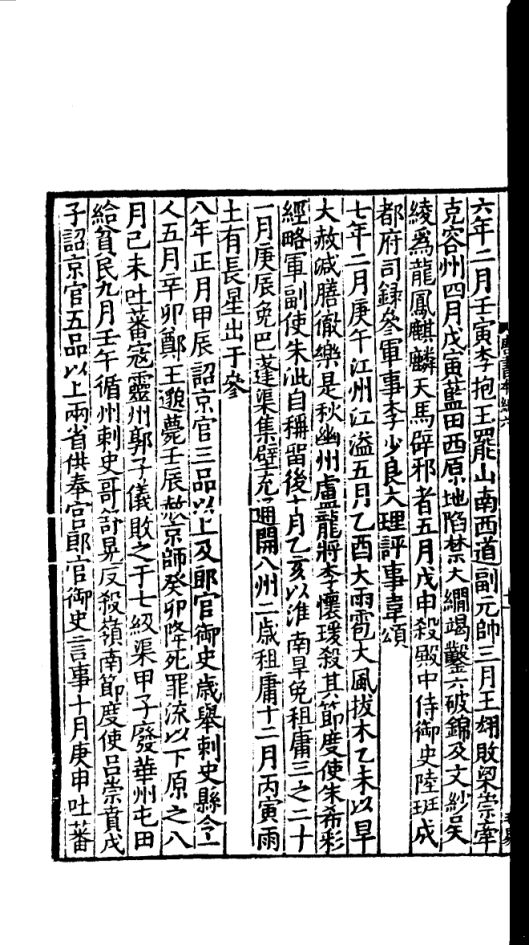 六年二月壬寅李抱玉罷山南西道副元帥三月王翃敗梁崇牽
克容州四月戊寅藍田西原地陷禁大繝竭鑿六破錦及文紗吴
綾爲龍鳳麒麟天馬辟邪者五月戊申殺殿中侍御史陸珽成
都府司録參軍事李少良大理評事韋頌
七年二月庚午江州江溢五月乙酉大雨雹大風拔木乙未以旱
大赦減膳徹樂是秋幽州盧龍將李懷瑗殺其節度使朱希彩
經略軍副使朱泚自稱留後十月乙亥以淮南旱免租庸三之二十
一月庚辰免巴蓬渠集壁充通開八州二歲租庸十二月丙寅雨
土有長星出于參
八年正月甲辰詔京官三品以上及郎官御史歲舉刺史縣令一
人五月辛卯鄭王邈薨壬辰慭京師癸卯降死罪流以下原之八
月己未吐蕃寇靈州郭子儀敗之于七級渠甲子廢華州屯田
給貧民九月壬午循州刺史哥舒晃反殺嶺南節度使吕崇賁戌
子詔京官五品以上兩省供奉官郎官御史言事十月庚申吐蕃